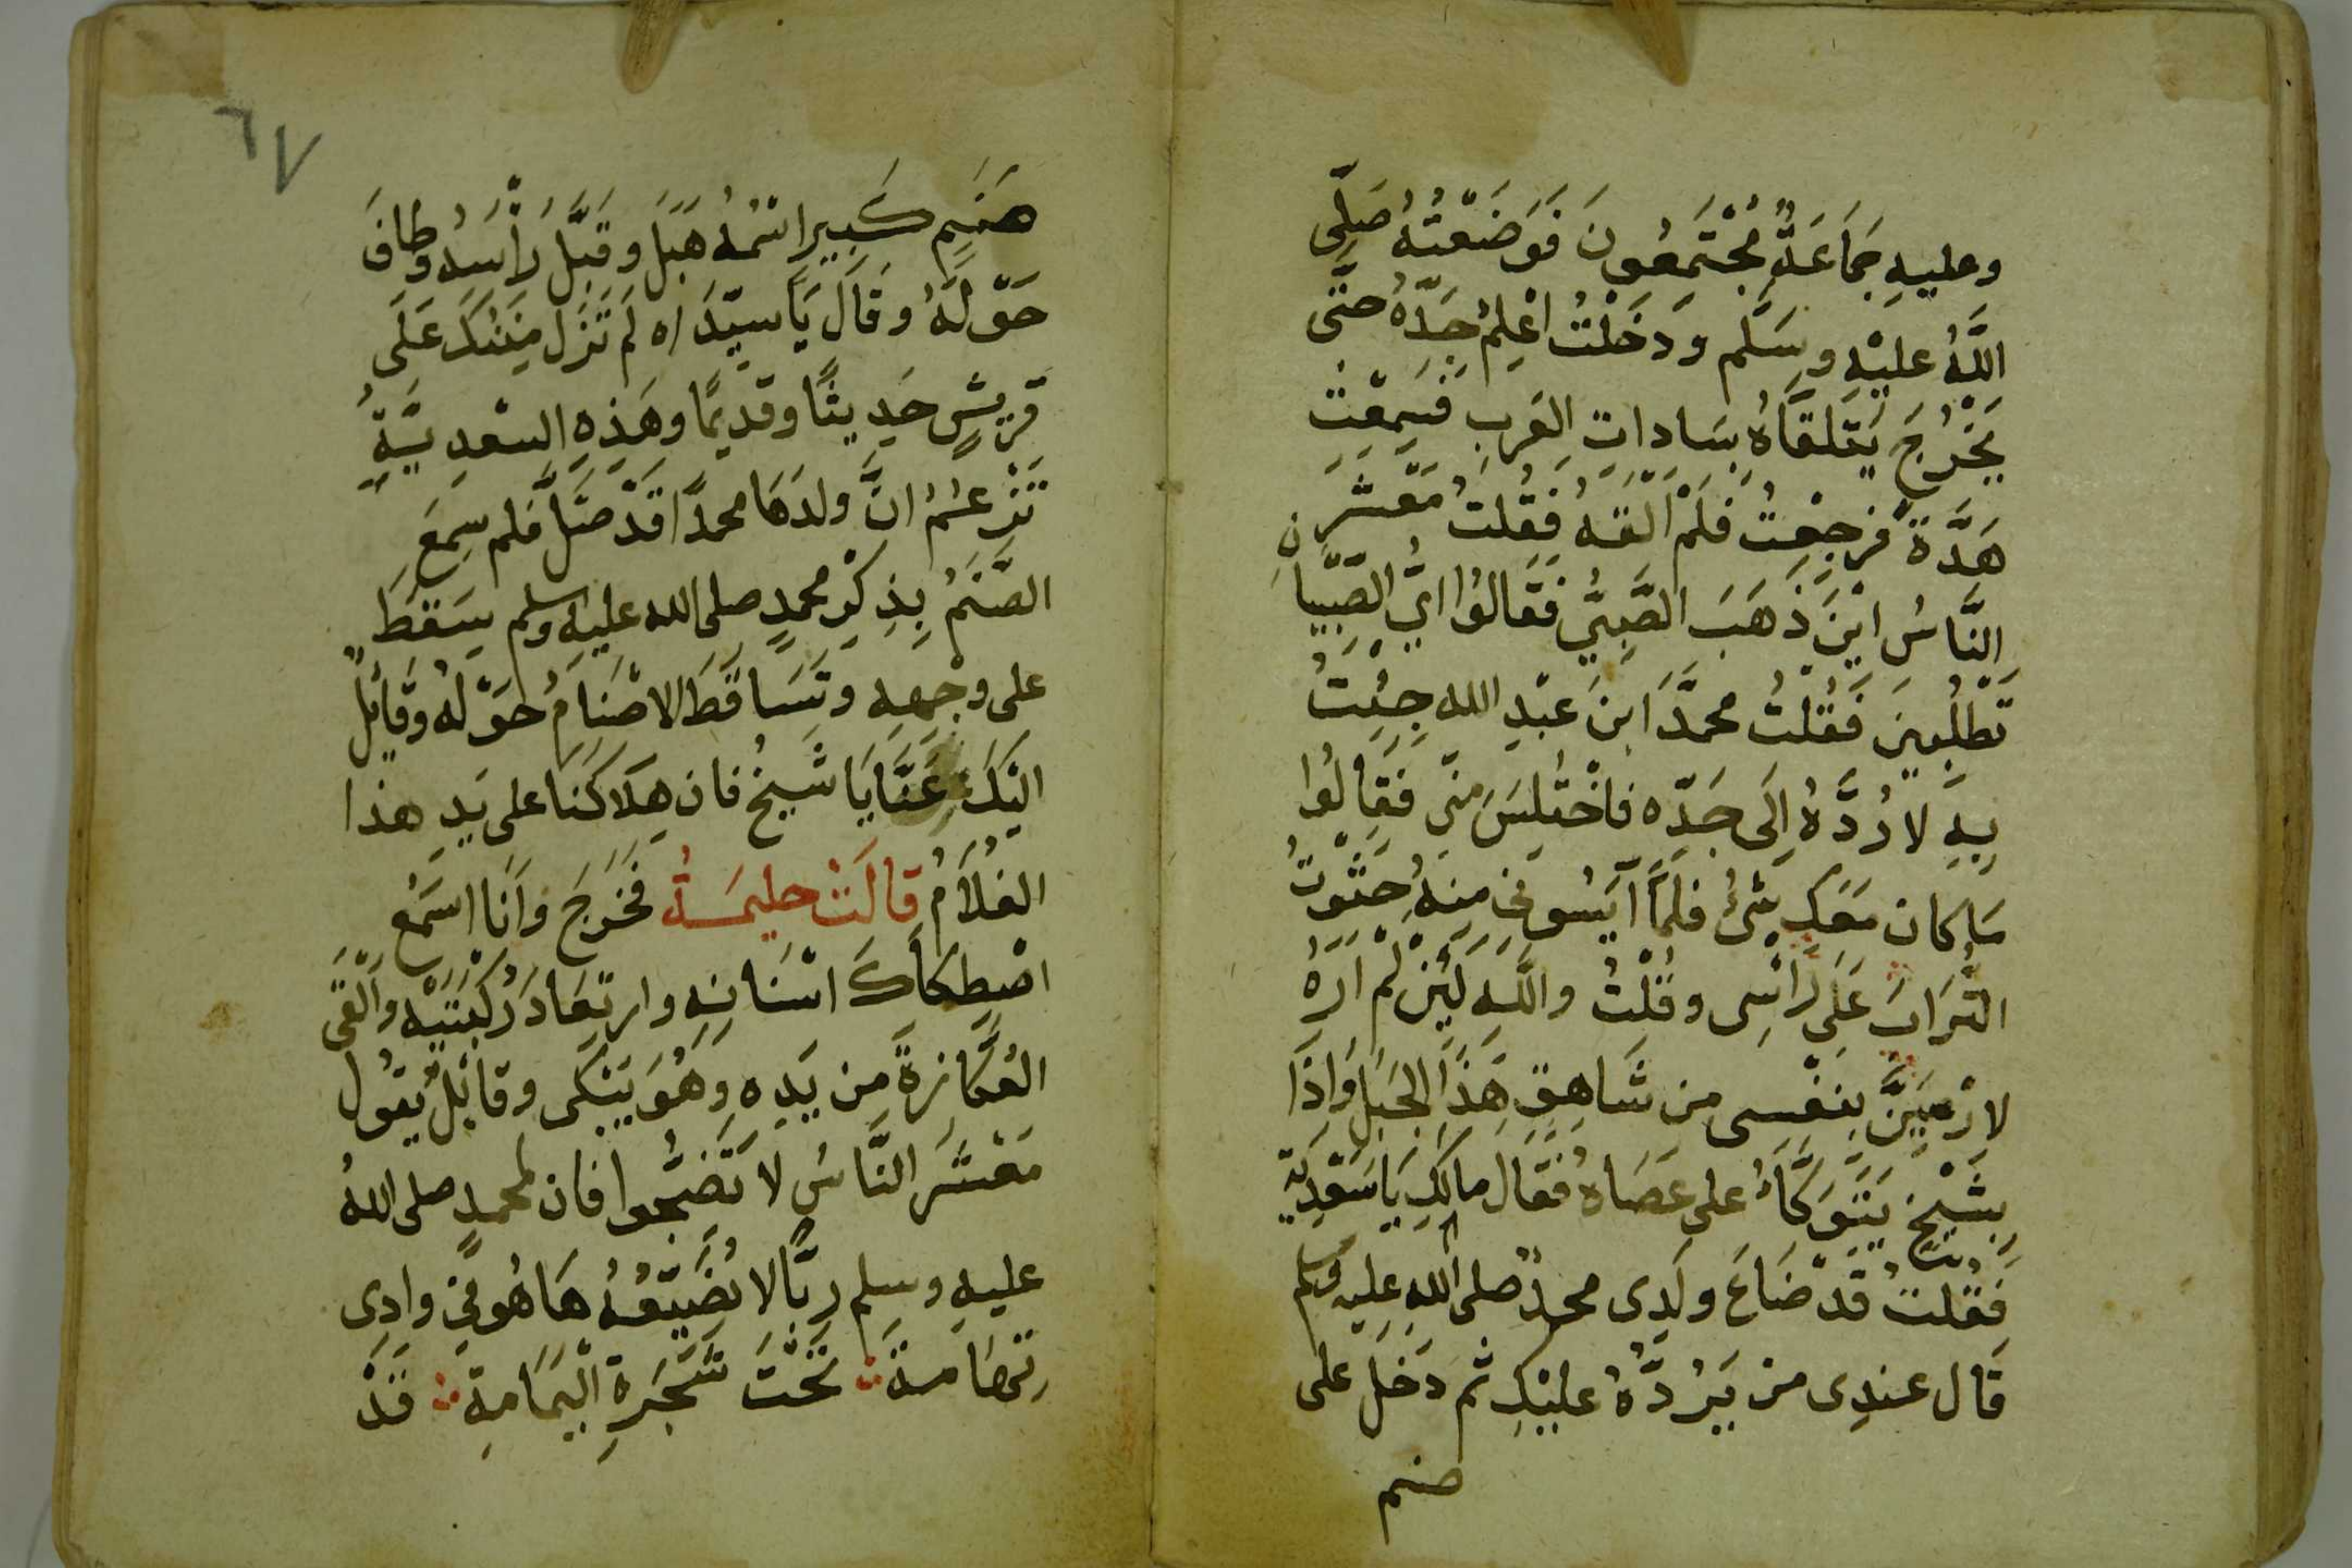 وعليهِ جَمَاعَةٌ مُجْتَمَعُونَ فَوَضَعْتُهُ صَلَّى
اللَّهُ عليْهِ وسَلَّم ودَخَلْتُ اُعْلِمُ جَدَّهُ حتَّى
يَخْرُجَ يَتَلقَّاهُ بسَاداتِ العَرَبِ فسَمِعْتَ
هَدَّةً فرجعْتُ فَلَمْ اَلْقَهُ فَقُلتُ مَعْشَرَ
النَّاسُ ايْنَ ذَهَبَ الصَّبِيُّ فقَالوُا ايُّ الصِّبْيَانِ
تَطْلُبِينَ فَقُلْتُ محمدَّ ابنَ عبْدِ الله جِئْتُ
بِهِ لارُدَّهُ اِلَى جَدِّه فاخْتُلِسَ منّى فَقَالُوا
مَا كان مَعَكِ شئُ فلَمَّا آيَسُونِى مِنهُ حَثَوْتُ
التُّرَابَ عَلَى رَاْسِى وقُلْتُ واللَّهِ لَئِنْ لَمْ اَرَهُ
لارْمِيَنَّ بِنفْسى من شَاهِقِ هَذَا الجَبَلِ وَاِذَا
بِشَيْخٍ يَتَوَكَّأُ على عَصَاهُ فَقَالَ مالَكِ يَا سَعْدِيَّة
فَقُلتُ قَدْ ضَاعَ ولَدِى محمدٌ صلى اللهِ عليه وسلم
قَال عندِى من يَرُدَّهُ عليْكِ ثم دَخَلَ على
صنم
٦٧
صَنَمٍ كَبِيرٍ اسْمُهُ هبَلَ وقَبَّلَ رَاْسَهُ وطافَ
حَوْلَهُ وقَالَ يَا سيِّدَاه لَمْ تَزَل مِنَنُكَ عَلَى
قريشٍ حَدِيثًا وقَديمًا وهَذِهِ السَّعدِيَّةُ
تَزْعُمُ انَّ ولدَهَا محمدًا قَدْ ضَلَّ فلم سِمعَ
الصَّنَمُ بِذِكْرِ محمدٍ صلى الله عليه وسلم سَقَطَ
على وجْهِهِ وتَسَاقَطَ الاصْنَامُ حَوْلهُ وقَائِلٌ
اليْكَ عَنَّا يَا شَيخُ فان هِلَاكَنَا على يَدِ هذا
الغُلَامُ قالَتْ حليمَةُ فخَرَجَ وانَا اسْمَعُ
اصْطِكَاكَ اسْنَانِهِ وارتعَادَ رُكْبَتَيْهِ والْقَى
العُكَّازةَ من يَدِهِ وهُوَ يَبْكى وقائلٌ يقُول
مَعْشَرَ النَّاسُ لَا تَضِجُّوا فان لمحمدٍ صلى اللهُ
عليهِ وسلم رَبًّا لا يُضَيِّعُهُ هَا هُو فى وادِى
تِهَامَةَ تَحْتَ شَجَرةِ الْيَمَامةِ قَدْ